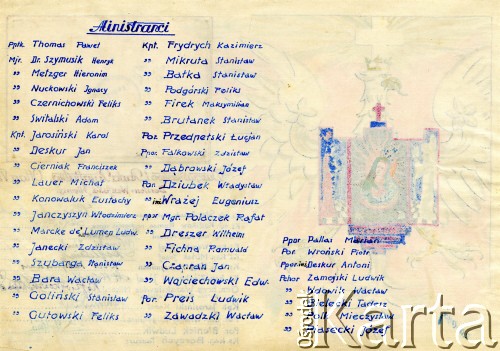 Ministranci
Ppłk. Thomas Paweł
Mjr. Dr. Szymusik Henryk
" Metzger Hieronim
" Nuckowski Ignacy
" Czernichowski Feliks
" Świtalski Adam
Kpt. Jarosiński Karol
" Deskur Jan
" Cierniak Franciszek
" Lauer Michał
" Konowaluk Eustachy
" Janczyszyn Włodzimierz
" Marcke de Lumen Ludw.
" Janecki Zdzisław
" Szybarga Stanisław
" Bara Wacław
" Goliński Stanisław
" Gutowski Feliks
Kpt. Frydrych Kazimierz
" Mikruta Stanisław
" Batka Stanisław
" Podgórski Feliks
" Firek Maksymilian
" Brutanek Stanisław
Por. Przedpełski Łucjan
Ppor. Falkowski Zdzisław
" Dąbrowski Józef
Por. Dziubek Władysław
" inż Wrażej Eugeniusz
ppor Mgr. Polaczek Rafał
" Dreszer Wilhelm
" Fichna Romuald
" Czapran Jan
" Wojciechowski Edw.
Por. Preis Ludwik
" Zawadzki Wacław
Ppor Dallas Marian
Por Wroński Piotr
Ppor inż Deskur Antoni
Pchor Zamojski Ludwik
" Wdowik Wacław
" Bielecki Tadeusz
" Doll Mieczysław
" Piasecki Józef
Ośrodek
Karta